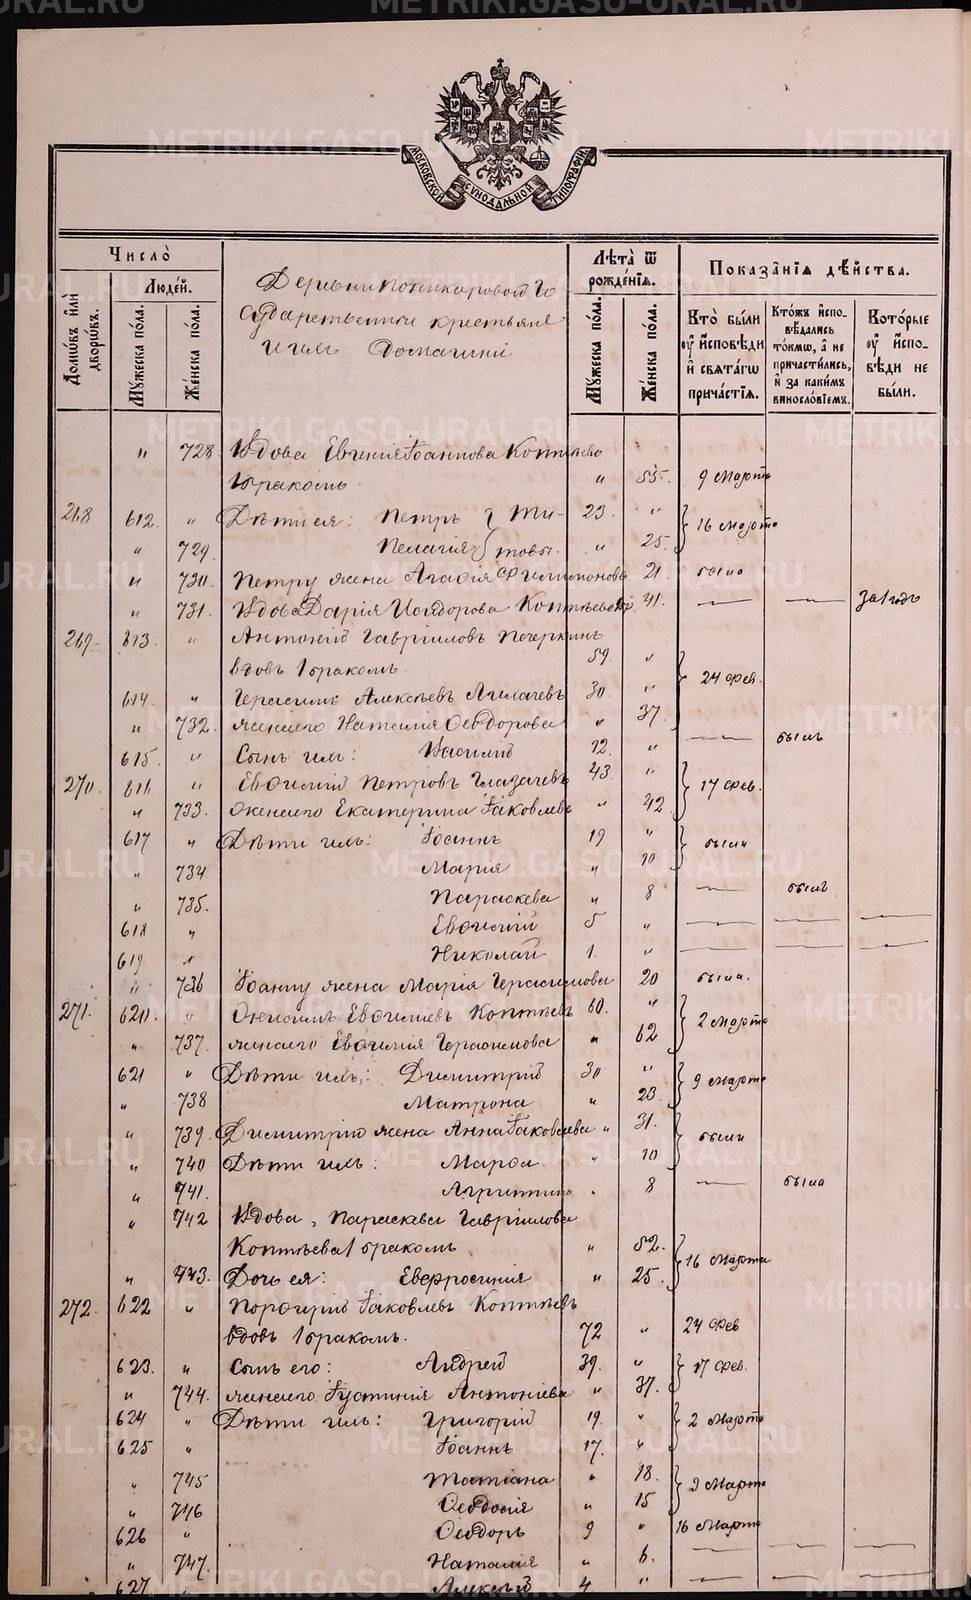 METRIKI.GASO-URAL.RU
МОСКОВСКОЙ СѴНОДАЛЬНОЙ ТИПОГРАФІИ
Число̀
Домѡ́въ и҆лѝ дворѡ́въ.
Людє́й.
Мꙋ́жеска по́ла.
Же́нска по́ла.
Деревни Поникаровой Го
сударственныи крестьяне
и ихъ Домашніи
Лѣ́та ѿ рожде́нїѧ.
Мꙋ́жеска по́ла.
Же́нска по́ла.
Показа̑нїѧ дѣ́йства.
Кто̀ бы́ли оу҆ и҆́споведи и҆ свѧта́гѡ прича́стїѧ.
Кто́жъ и҆спо- вѣ́дались то́кмѡ, а҆ не причасти́лись, и҆ за каки́мъ виносло́вїемъ.
Кото́рые оу҆ и҆́спо- вѣди не бы́ли.
" 728 Вдова Евгенія Іоаннова Коптѣева
1 бракомъ. " 55. 9 Марта
268 612. " Дѣти ея: Петръ } Ти- 23. " } 16 Марта
" 729. Пелагія } товы. " 25.
" 730. Петру жена Агафія Филимонова 21. была
" 731. Вдова Дарія Исидорова Коптѣева 41. — — За 1 годъ
269. 613. " Антоній Гавріиловъ Печеркинъ
вдовъ 1 бракомъ. 59. " } 24 Фев.
614. " Герасимъ Алексѣевъ 30. "
" 732. жена его Наталія Ѳеодорова " 37
615. " Сынъ ихъ: Василій 12. " — былъ
270. 616 " Евѳимій Петровъ Глазачевъ 43. " } 17 Фев.
" 733. жена его Екатерина Іаковлева " 42
617 " Дѣти ихъ: Іоаннъ 19 " } были
" 734 Марія " 10
" 735. Параскева " 8 — былъ
618 " Евѳимій 5 " — — —
619 " Николай 1. " — — —
" 736 Іоанну жена Марія Герасимова 20 была.
271. 620. " Онисимъ Евѳиміевъ Коптѣевъ 60. " } 2 Марта
" 737. жена его Евѳимія Герасимова " 62
621 " Дѣти ихъ: Димитрій 30 " } 9 Марта
" 738 Матрона " 23.
" 739. Димитрію жена Анна Іаковлева " 31. } были
" 740 Дѣти ихъ: Марѳа " 10
" 741. Агриппина " 8 — была
" 742 Вдова, Параскева Гавріилова
Коптѣева 1 бракомъ " 52. } 16 Марта
" 743. Дочь ея: Евфросинія " 25.
272. 622 " Порфирій Іаковлевъ Коптѣевъ
вдовъ 1 бракомъ. 72 " 24 Фев
623. " Сынъ его: Андрей 39. " } 17 Фев.
" 744. жена его Іустинія Антоніева " 37.
624 " Дѣти ихъ: Григорій 19. " } 2 Марта
625 " Іоаннъ 17. "
" 745 Татіана " 18. } 9 Марта
" 746 Ѳеодосія " 15
626 " Ѳеодоръ 9 " 16 Марта
" 747. Наталія " 6. — — —
627 " Алексѣй 4 " — — —